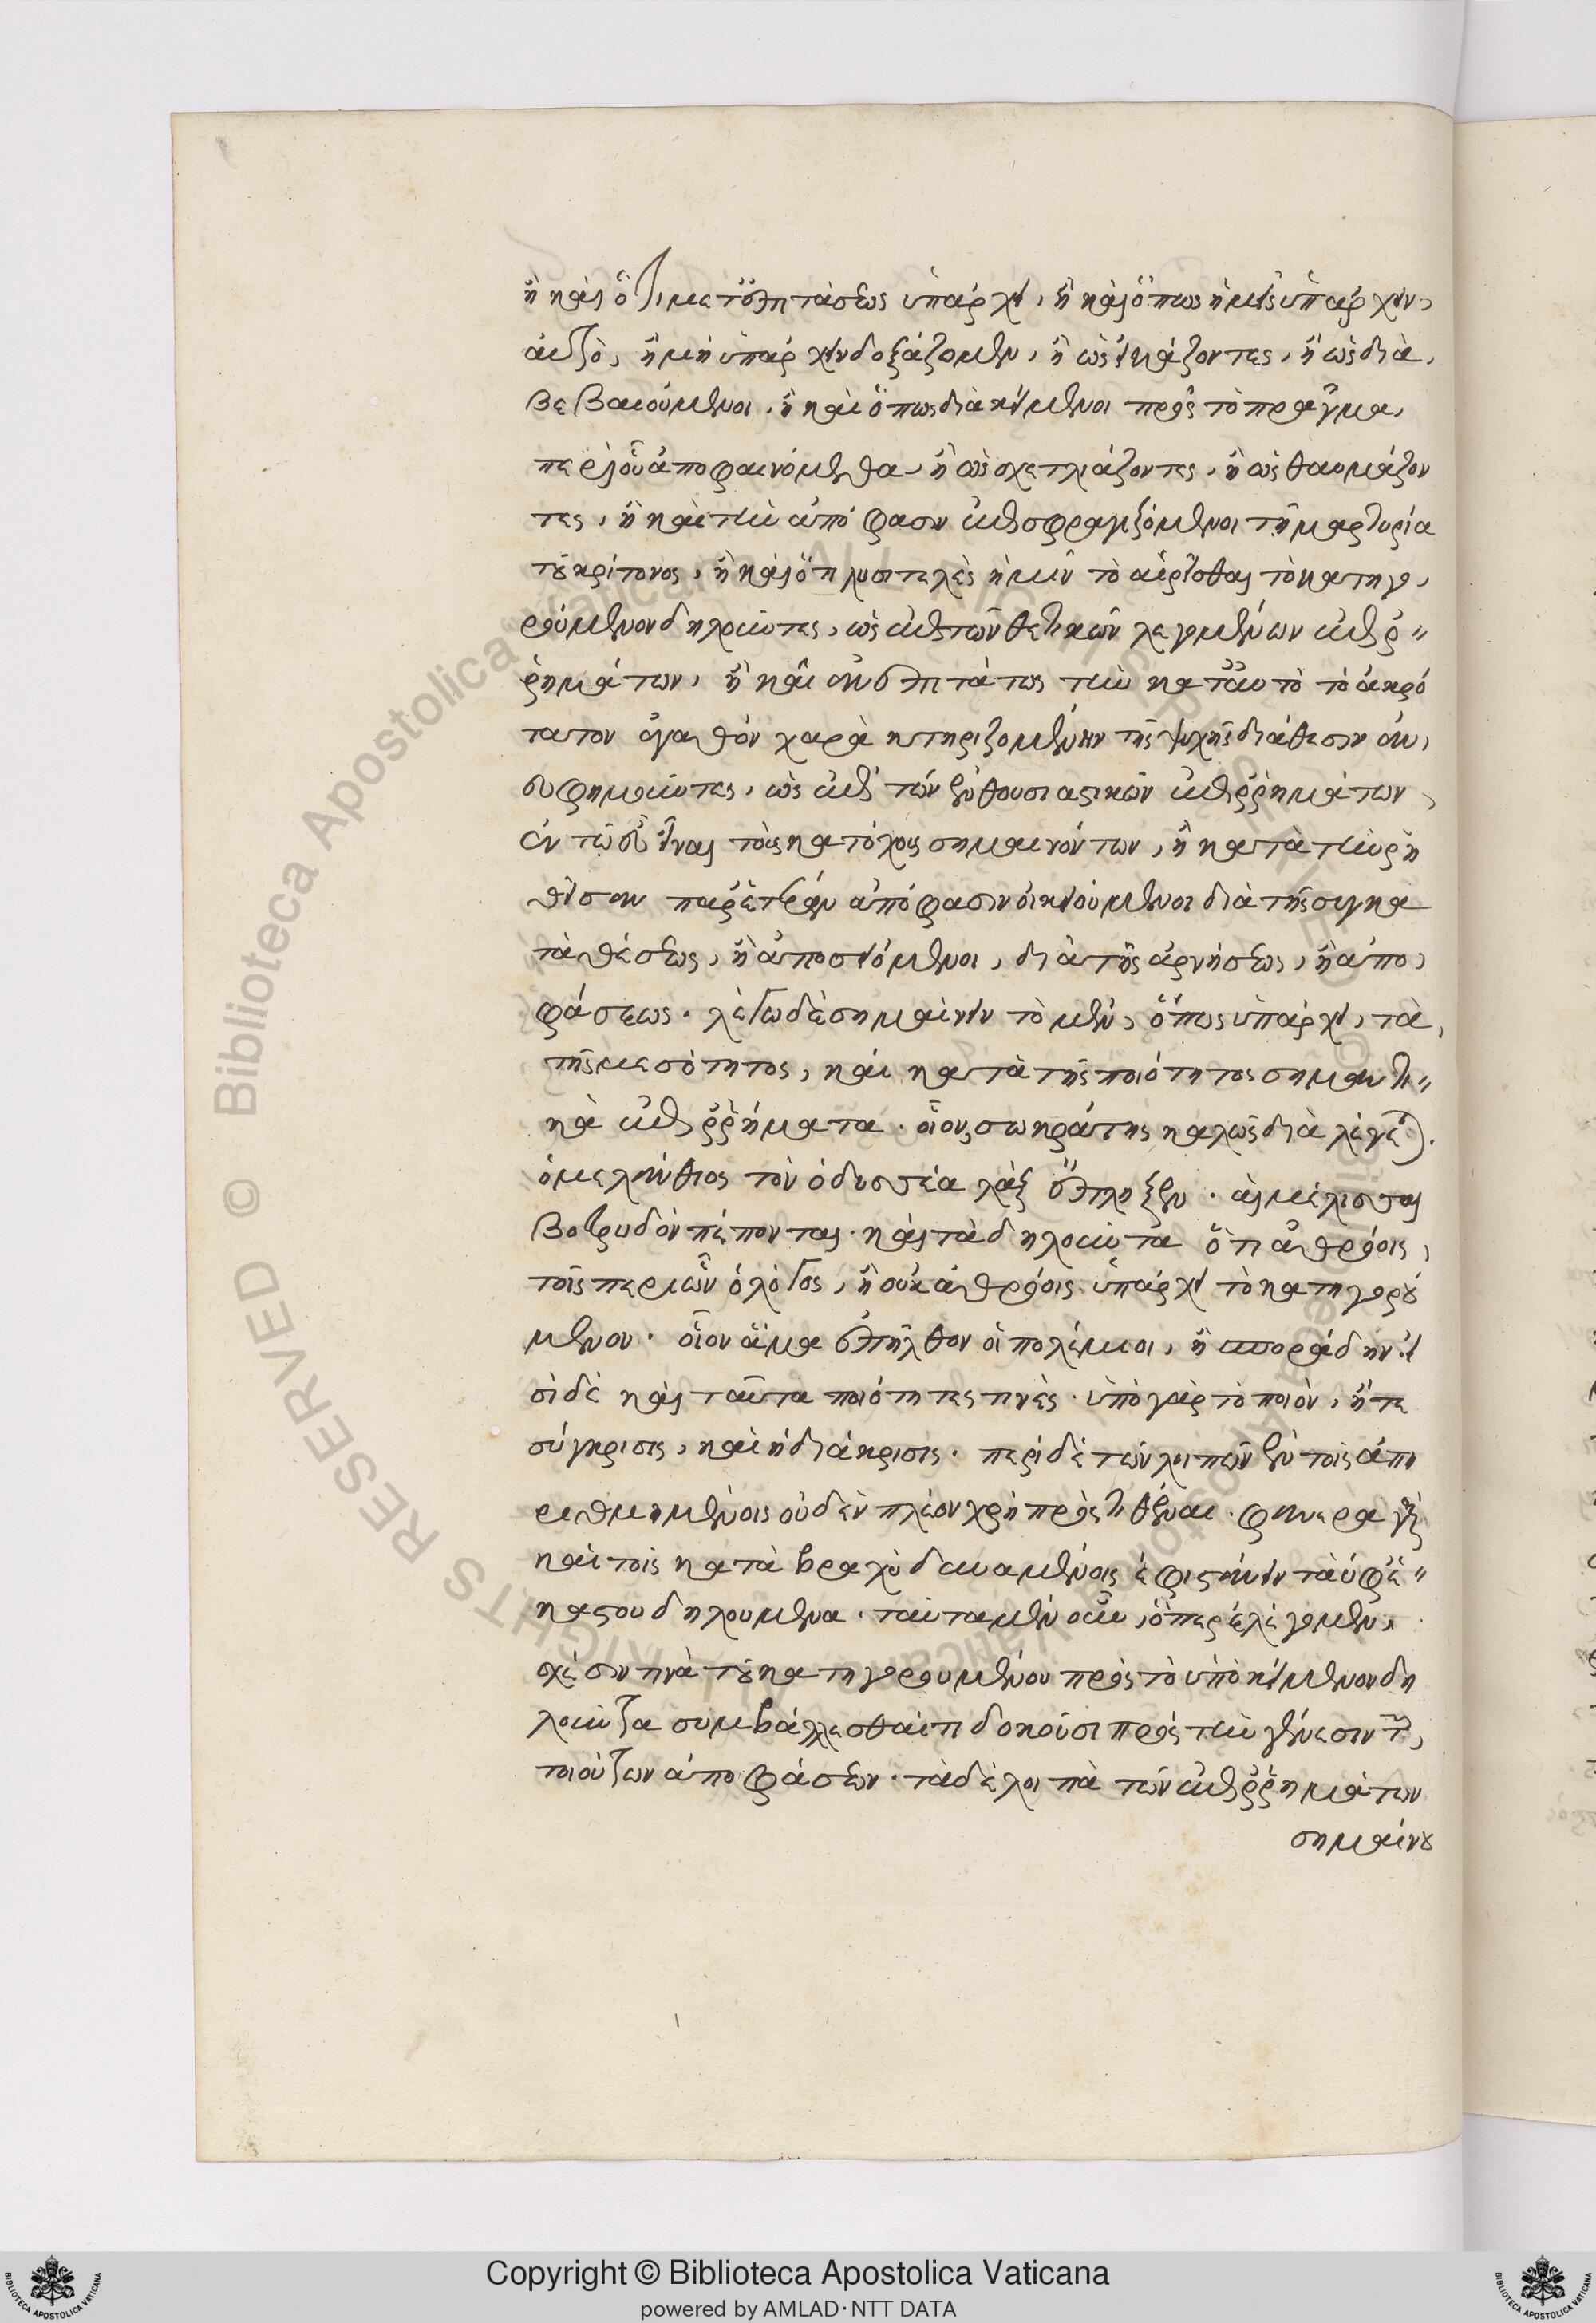 ἢ καὶ ὅτι μετ' ἐπιτάσεως ὑπάρχει, ἢ καὶ ὅπως ἡμεῖς ὑπάρχειν
αὐτὸ, ἢ μὴ ὑπάρχειν δοξάζομεν, ἢ ὡς εἰκάζοντες, ἢ ὡς δια
βεβαιούμενοι, ἢ καὶ ὅπως διακείμενοι πρὸς τὸ πρᾶγμα,
περὶ οὗ ἀποφαινόμεθα, ἢ ὡς σχετλιάζοντες, ἢ ὡς θαυμάζον
τες, ἢ καὶ τὴν ἀπόφασιν ἐπισφραγιζόμενοι τῇ μαρτυρίᾳ
τοῦ κρίτονος, ἢ καὶ ὅτι λυσιτελὲς ἡμῖν τὸ αἱρεῖσθαι τὸ κατηγο
ρούμενον δηλοῦντες, ὡς ἐπὶ τῶν θετικῶν λεγομένων ἐπιρ
ρημάτων, ἢ καὶ ἀνεπιτάτως τὴν κατ' αὐτὸ τὸ ἀκρό
τατον ἀγαθὸν χαρακτηριζομένην τῆς ψυχῆς διάθεσιν ἀν
ευφημοῦντες, ὡς ἐπὶ τῶν ἐνθουσιαστικῶν ἐπιρρημάτων
ἐν τῷ εὖ εἶναι τοὺς κατόχους σημαινόντων, ἢ κατὰ τὴν ῥη
θεῖσαν παρ' ἑτέρων ἀπόφασιν οἰκειούμενοι διὰ τῆς συγκα
ταθέσεως, ἢ ἀποσειόμενοι, διὰ τῆς ἀρνήσεως, ἢ ἀπο
φάσεως. λέγω δὲ σημαίνειν τὸ μὲν, ὅπως ὑπάρχει, τὰ
τῆς μεσότητος, καὶ κατὰ τῆς ποιότητος σημαντι
κὰ ἐπιρρήματα. οἷον, σωκράτης καλῶς διαλέγεται.
ὁ μελάνθιος τὸν ὀδυσσέα λὰξ ἔπληξεν. αἱ μέλισσαι
βοτρυδὸν πέπονται. καὶ τὰ δηλοῦντα ὅτι ἀθρόοις
τοῖς περὶ ὧν ὁ λόγος, ἢ οὐκ ἀθρόοις ὑπάρχει τὸ κατηγορού
μενον. οἷον ἅμα ἐπῆλθον οἱ πολέμιοι, ἢ σποράδην. εἰ
σὶ δὲ καὶ ταῦτα ποιότητες τινές. ὑπὸ γὰρ τὸ ποιὸν, ἥ τε
σύγκρισις, καὶ ἡ διάκρισις. περὶ δὲ τῶν λοιπῶν ἐν τοῖς ἀπη
ριθμημένοις οὐδὲν πλέον χρὴ προστιθέναι. φανερὰ γὰρ
καὶ τοῖς κατὰ βραχὺ δυναμένοις ἐφιστάνειν τὰ ὑφ' ἑ
κάστου δηλούμενα. ταῦτα μὲν οὖν, ὅπερ ἐλέγομεν,
σχέσιν τινὰ τοῦ κατηγορουμένου πρὸς τὸ ὑποκείμενον δη
λοῦντα συμβάλλεσθαί τι δοκοῦσι πρὸς τὴν γένεσιν τῶν
τοιούτων ἀποφάσεων. τὰ δὲ λοιπὰ τῶν ἐπιρρημάτων
σημαίνου